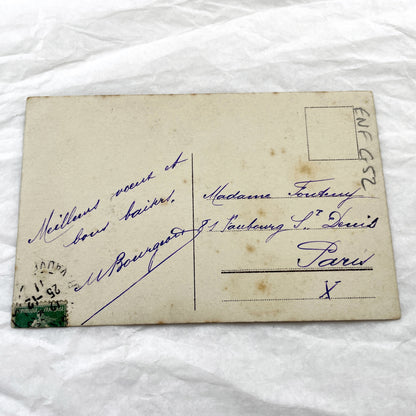 Meilleurs vœux et
bons baisers.
M Bourgeois
Madame Fonteny
51 Faubourg St Denis
Paris
X
ENF G52
25-12
11